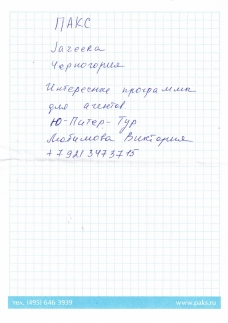 ПАКС
Гагеева
Черногория
Интересные программы
для агентов
Ю-Питер-Тур
Любимова Виктория
+7 921 3473715
тел. (495) 646 3939 www.paks.ru